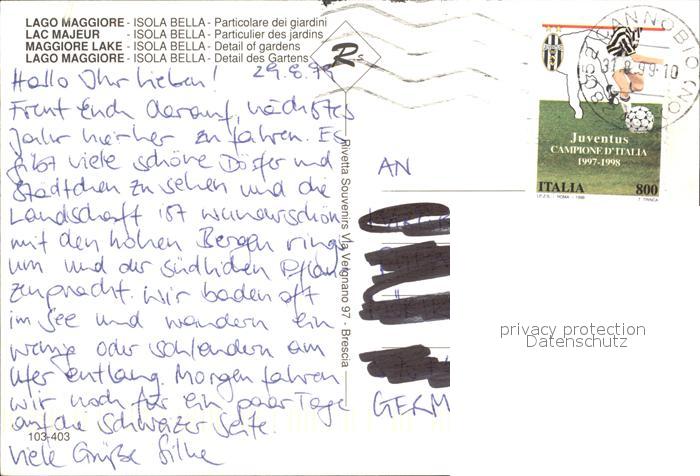 LAGO MAGGIORE - ISOLA BELLA - Particolare dei giardini
LAC MAJEUR - ISOLA BELLA - Particulier des jardins
MAGGIORE LAKE - ISOLA BELLA - Detail of gardens
LAGO MAGGIORE - ISOLA BELLA - Detail des Gartens
Hallo Ihr Lieben! 29.8.99
Freut Euch darauf, nächstes
Jahr hierher zu fahren. Es
gibt viele schöne Dörfer und
Städtchen zu sehen und die
Landschaft ist wunderschön
mit den hohen Bergen rings
um und der südlichen Pflan
zenpracht. Wir baden oft
im See und wandern ein
wenig oder schlendern am
Ufer entlang. Morgen fahren
wir noch für ein paar Tage
auf die Schweizer Seite.
Viele Grüße Silke
103-403
Rivetta Souvenirs Via Vergnano 97 - Brescia
R
AN
GERM
CANNOBIO
31.8.99-10
Juventus
CAMPIONE D'ITALIA
1997-1998
ITALIA 800
I.P.Z.S. - ROMA - 1998
privacy protection
Datenschutz